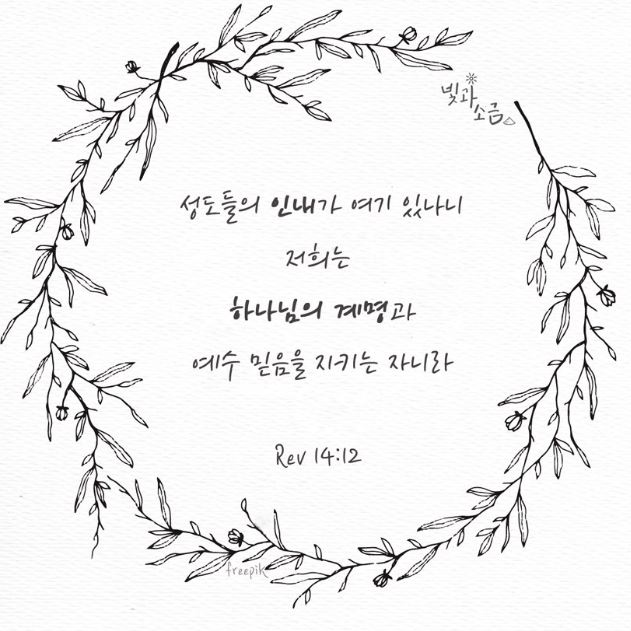 빛과
소금
성도들의 인내가 여기 있나니
저희는
하나님의 계명과
예수 믿음을 지키는 자니라
Rev 14:12
freepik